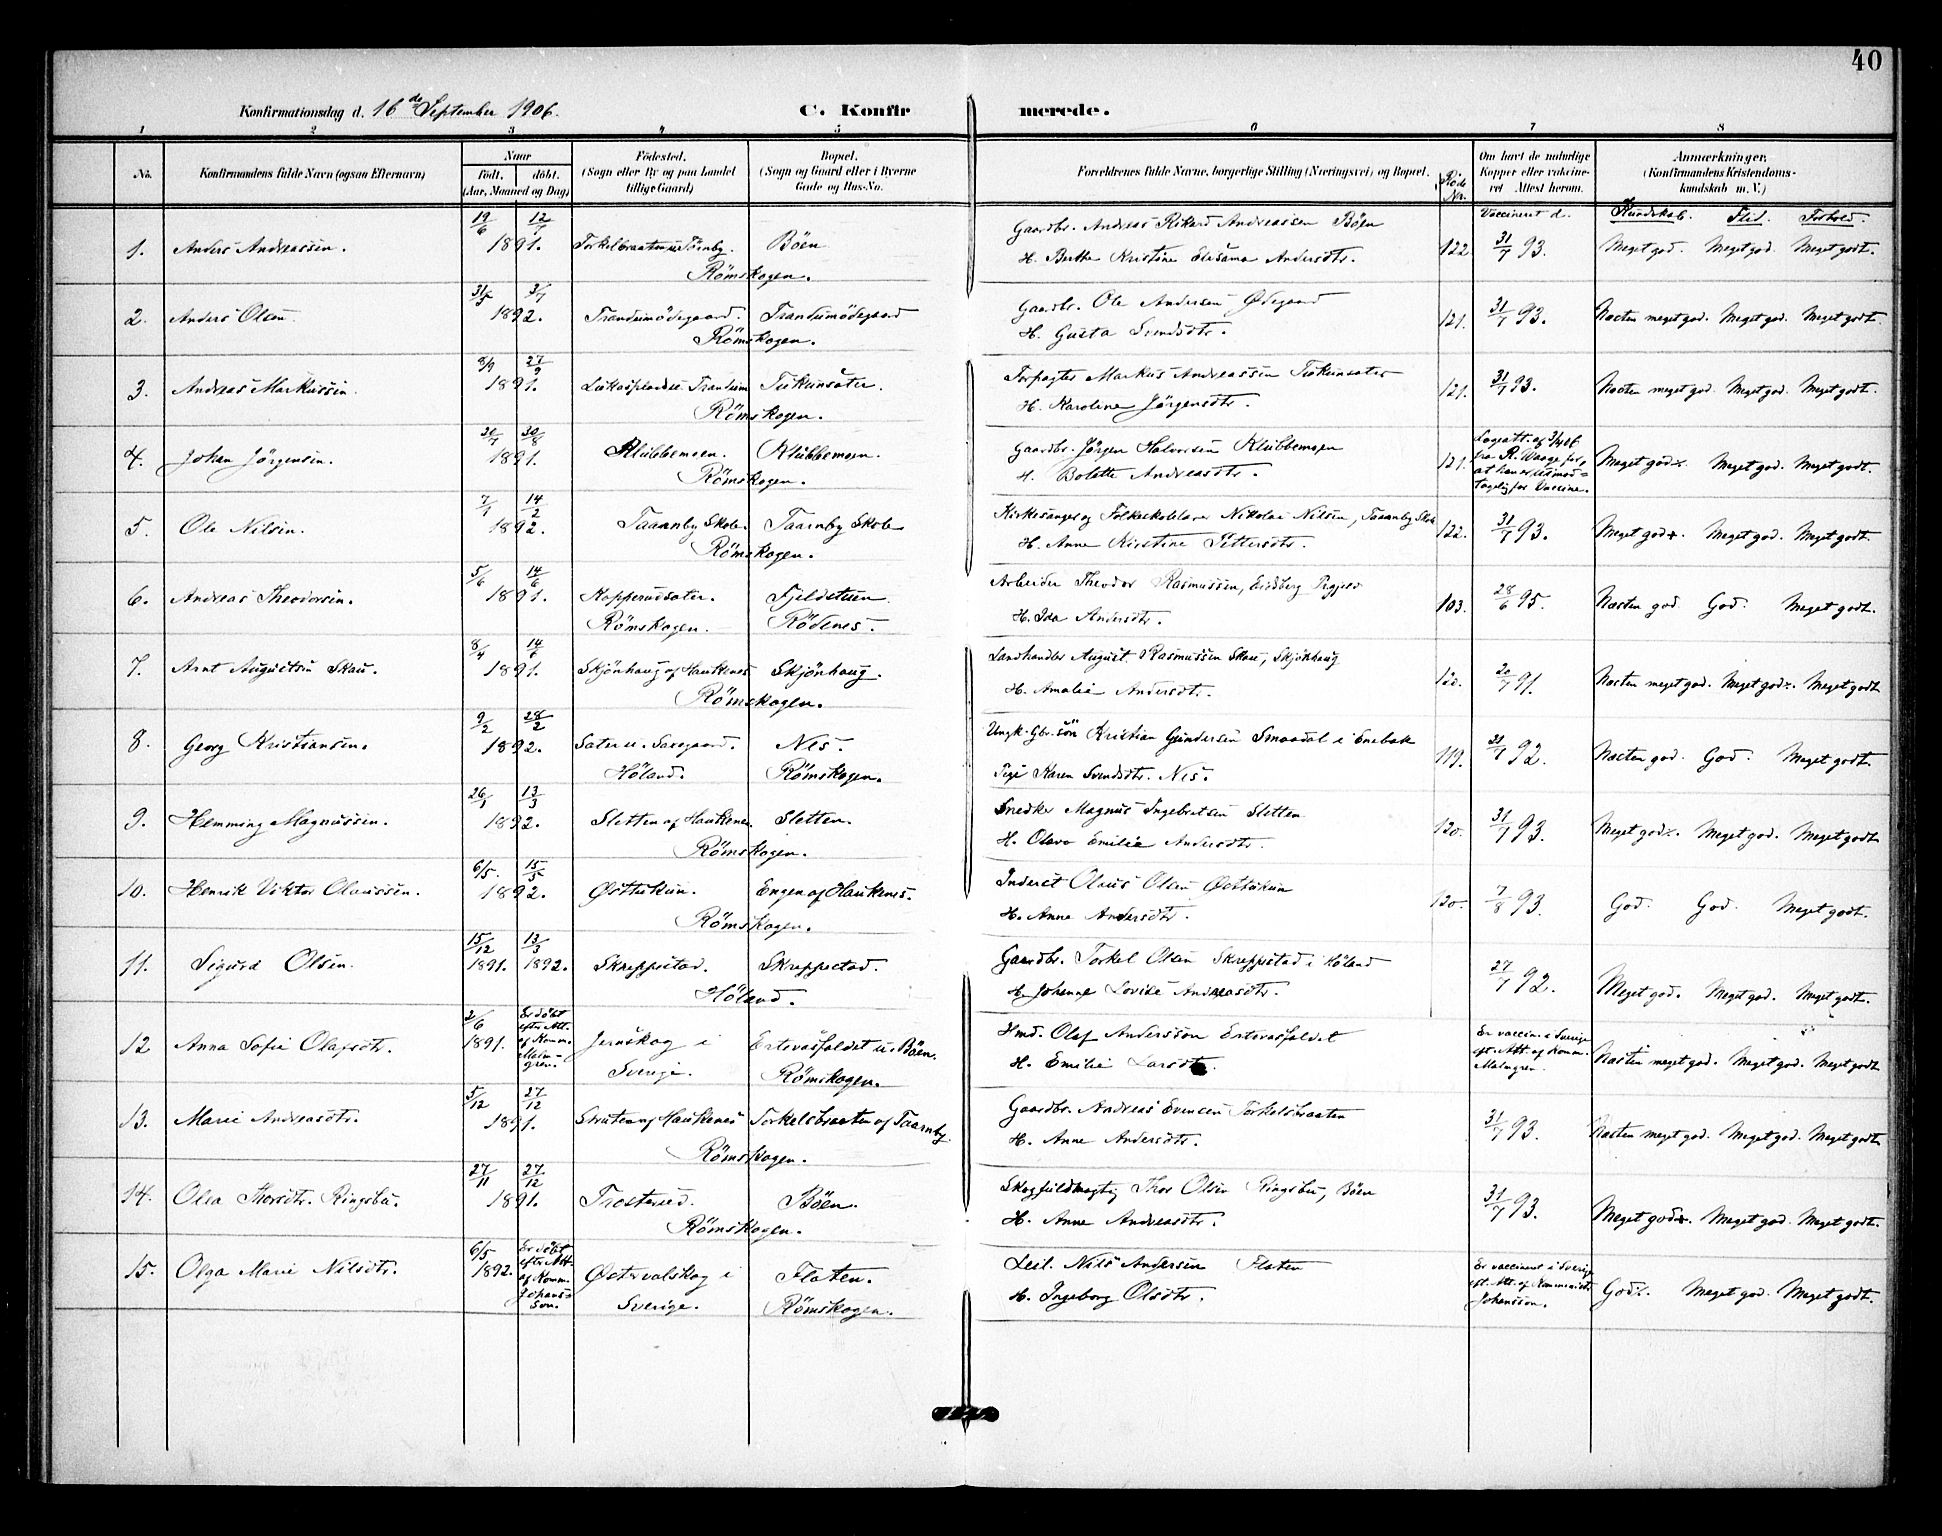 40
Konfirmationsdag d. 16de September 1906.
C. Konfirmerede.
1 2 3 4 5 6 7 8
No. Konfirmandens fulde Navn (ogsaa Efternavn) Naar født, døbt. (Aar, Maaned og Dag) Fødested. (Sogn eller By og paa Landet tillige Gaard) Bopæl. (Sogn og Gaard eller i Byerne Gade og Hus-No. Forældrenes fulde Navne, borgerlige Stilling (Næringsvei) og Bopæl. Om havt de naturlige Kopper eller vaccineret. Attest herom. Anmærkninger. (Konfirmandens Kristendomskundskab m. V.)
Vaccineret d. Kundskab. Flid. Forhold.
19/6 12/7 Gaardbr. Andreas Rikard Andreassen Böen
1. Anders Andreassen. 1891. Torkelsbraaten u. Törnby. Böen 122. 31/7 93. Meget god. Meget god. Meget godt.
Römskogen. H. Berthe Kristine Elisama Andersdtr.
31/5 3/7 Gaardbr. Ole Andersen Ødegaard
2. Anders Olsen 1892. Trandumödegaard. Trandumödegaard 121. 31/7 93. Næsten meget god. Meget god. Meget godt
Römskogen. H. Gusta Svendsdtr.
8/9 27/9 Forpagter Markus Andreassen
3. Andreas Markussen. 1891. Trandum 121. 31/7 93. Næsten meget god. Meget god. Meget godt.
Römskogen. H. Karoline Jörgensdtr.
20/7 30/8 Gaardbr. Jörgen Halvorsen Klubbemoen
4. Johan Jörgensen. 1891. Klubbemoen. Klubbemoen. 121. Lægeatt. af fra R. Waage for, at han er umodtagelig for Vaccine. Meget god. Meget god. Meget godt.
Römskogen. H. Bolette Andreasdtr.
7/1 14/2 Kirkesanger og Folkeskolelærer Nikolai Nilsen, Taarnby Skole
5. Ole Nilsen. 1892. Taarnby Skole. Taarnby Skole 122. 31/7 93. Meget god. Meget god. Meget godt.
Römskogen. H. Anne Kirstine Pettersdtr.
5/6 14/6 Arbeider Theodor Rasmussen, Eidsberg
6. Andreas Theodorsen. 1891. Kopperudsæter. Fjeldstuen 103. 28/6 95. Næsten god. God. Meget godt.
Römskogen. Rödenes. H. Ida Andersdtr.
8/4 Landhandler August Rasmussen Skau, Skjönhaug
7. Arnt Augustsen Skau. 1891. Skjönhaug af Haukenes Skjönhaug. 120. 20/7 91. Næsten meget god. Meget god. Meget godt
Römskogen. H. Amalie Andersdtr.
9/2 28/2 Ungk. Gbr.sön Kristian Gundersen Smaadal i Enebak
8. Georg Kristiansen. 1892. Sæter u. Nes. 119. 92. Næsten god. God. Meget godt.
Höland. Römskogen. Pige Karen Svendsdtr. Nes.
26/1 13/3 Snedker Magnus Ingebretsen Sletten
9. Hemming Magnussen. 1892. Sletten af Haukenes. Sletten. 120. 31/7 93. Meget god. Meget god. Meget godt
Römskogen. H. Olava Emilie Andersdtr.
6/5. 15/5 Inderst Olaus Olsen Østtukun
10. Henrik Viktor Olaussen. 1892. Østtukun. Engen af Haukenes. 120. 7/8 93. God. God. Meget godt.
Römskogen. H. Anne Andersdtr.
15/12 13/3 Gaardbr. Torkel Olsen Skreppestad i Höland
11. Sigurd Olsen. 1891. 1892. Skreppestad. Skreppestad. 27/7 92. Meget god. Meget god. Meget godt.
Höland. H. Johanne Lovise Andreasdtr.
2/6 Er döbt efter Att. af Komm. Malmgren. Hmd. Olaf Andersson Ertevasfaldet
12 Anna Sofie Olafsdtr. 1891. Jernskog i Sverige. Ertevasfaldet u. Böen. Er vaccin. i Sverige eft. Att. af Komm. Malmgren. Næsten meget god. Meget god. Meget godt
Römskogen. H. Emilie Larsdtr.
5/12 27/12 Gaardbr. Andreas Evensen Torkelsbraaten
13. Marie Andreasdtr. 1891. Struten af Haukenes Torkelsbraaten af Taarnby. 31/7 93. Næsten meget god. Meget god. Meget godt
Römskogen. H. Anne Andersdtr.
27/11 27/12 Skogfuldmægtig Thor Olsen Ringsbu, Böen
14. Olea Thorsdtr. Ringsbu. 1891. Trosterud. Böen. 31/7 93. Meget god. Meget god. Meget godt.
Römskogen. H. Anne Andreasdtr.
6/5 1892. Er döbt efter Att. af Komm. Johansson. Leil. Nils Andersen Flaten
15. Olga Marie Nilsdtr. Östervalskog i Sverige. Flaten. Römskogen. Er vaccineret i Sverige eft. Att. af Kommunistr. Johansson. God. Meget god. Meget godt.
H. Ingeborg Olsdtr.